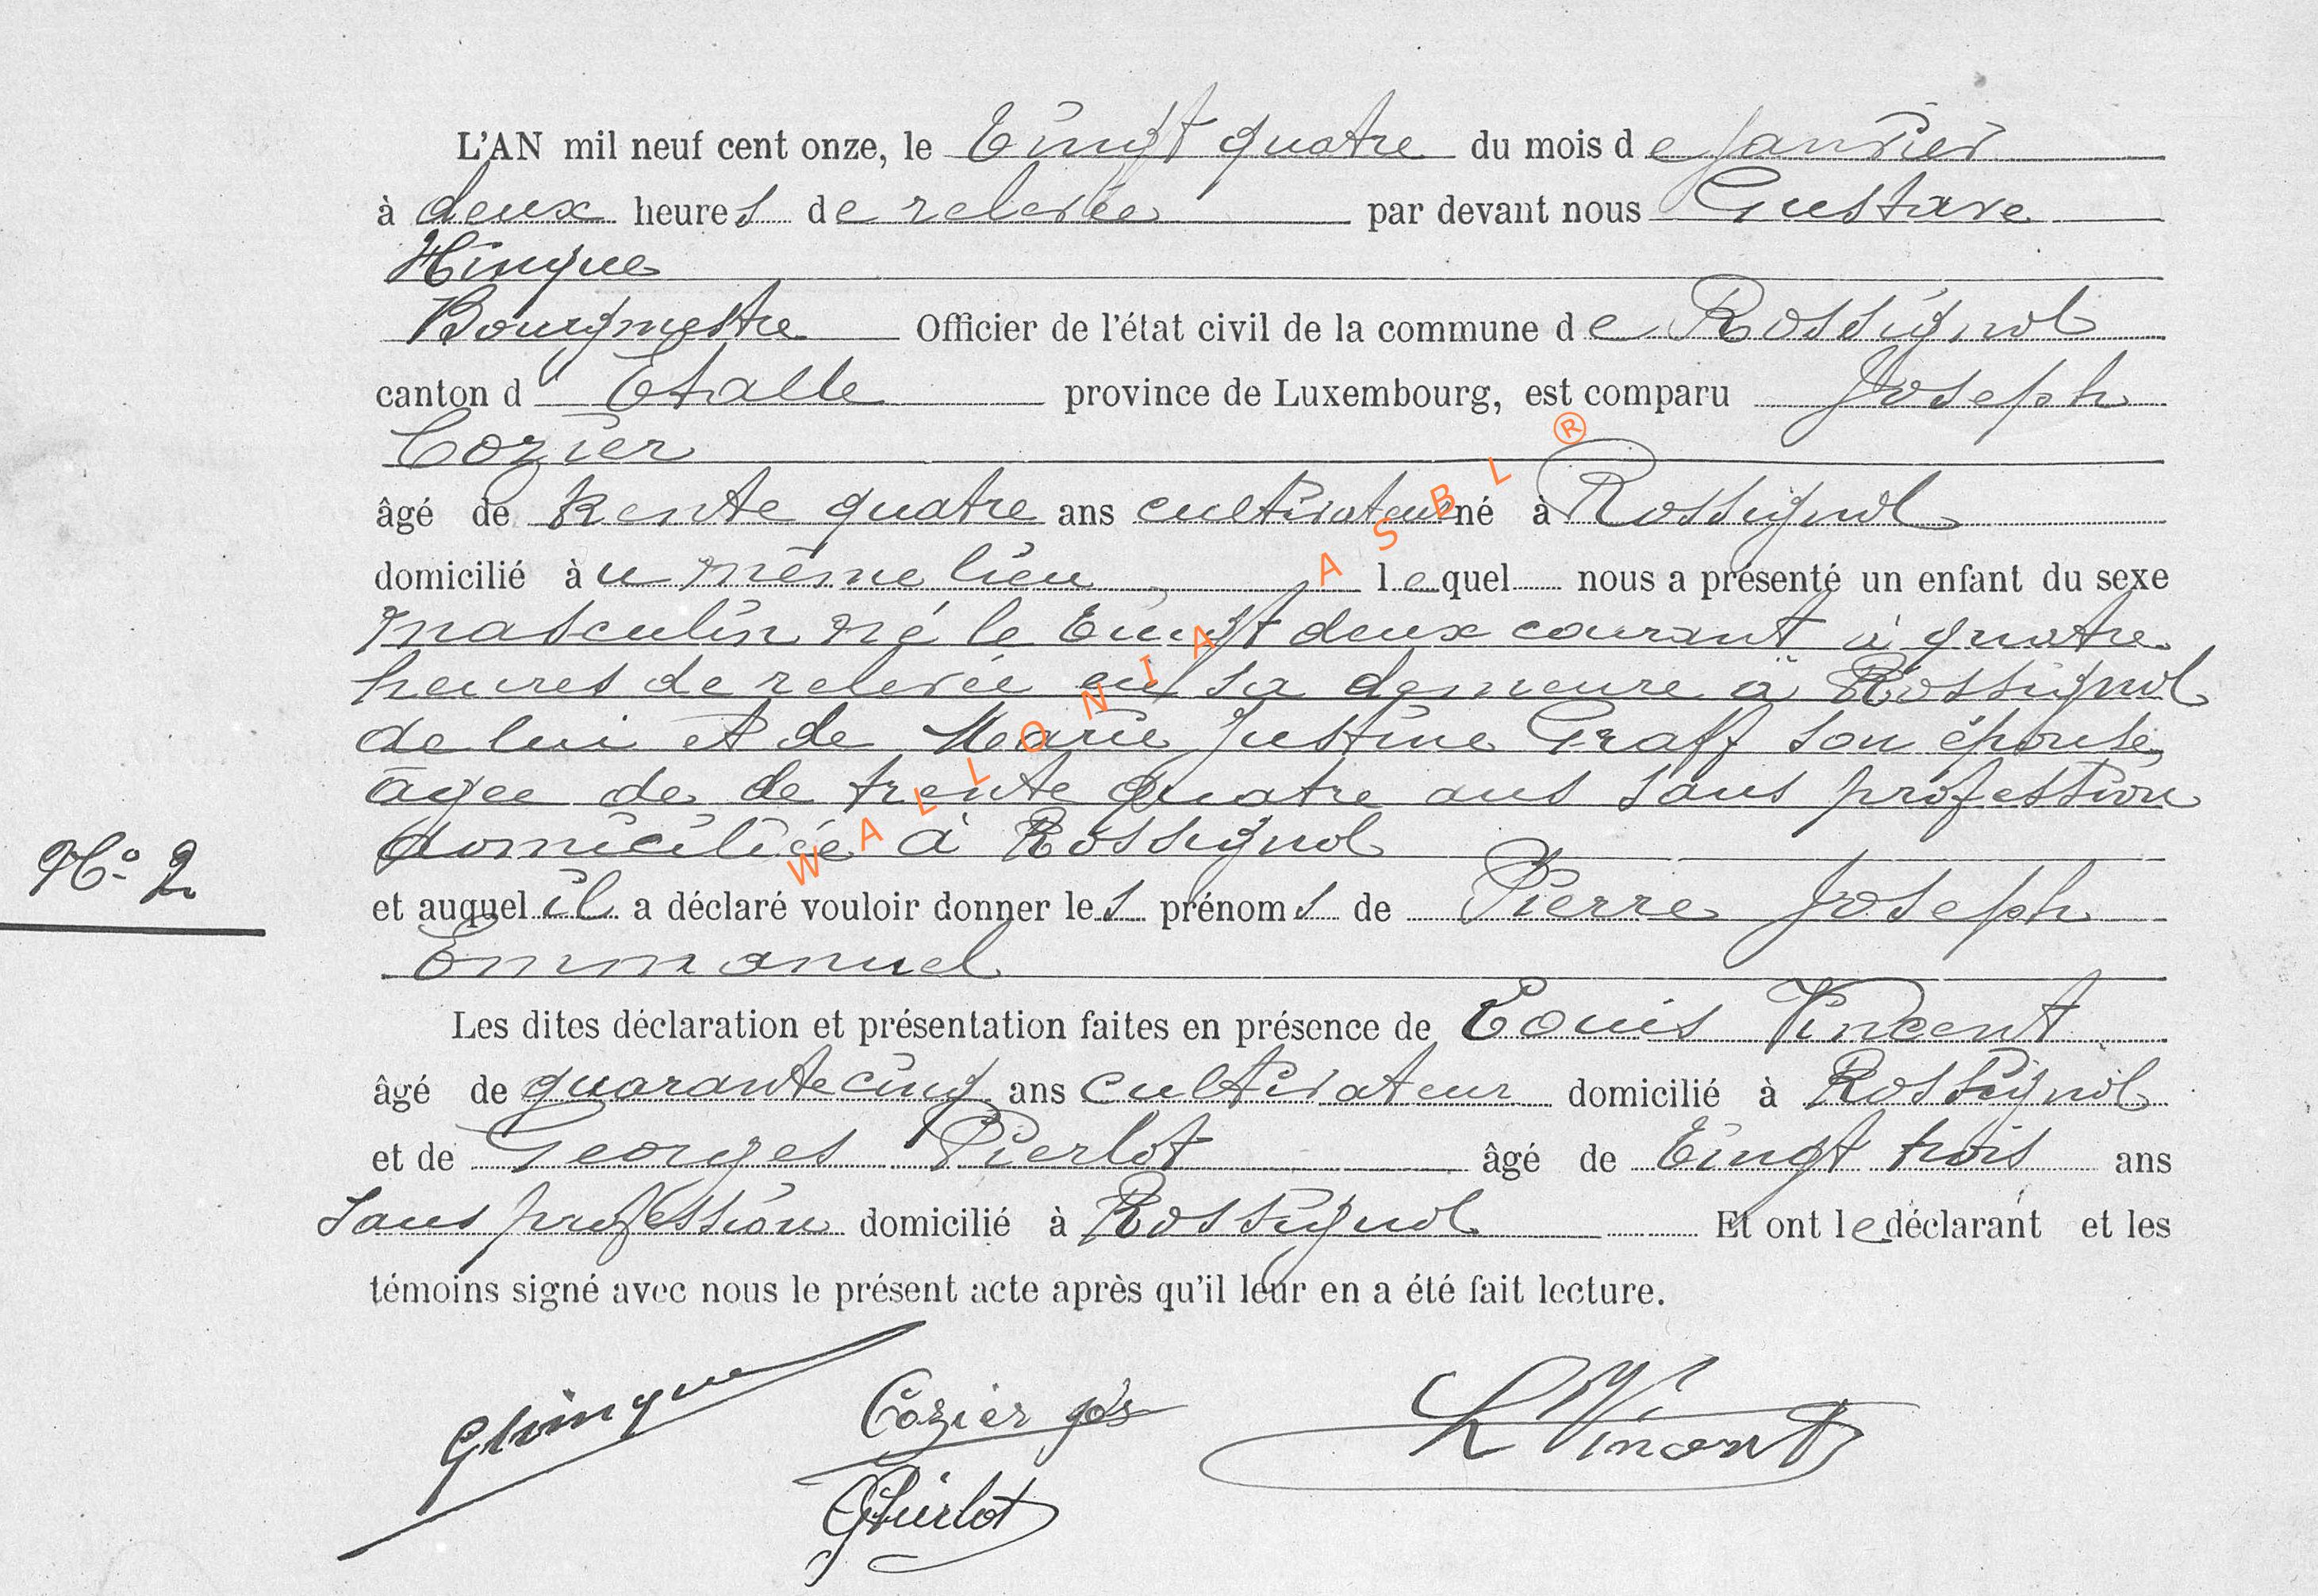 L'AN mil neuf cent onze, le Vingt quatre du mois de Janvier
à deux heures de relevée par devant nous Gustave
Hinque
Bourgmestre Officier de l'état civil de la commune de Rossignol
canton d'Etalle province de Luxembourg, est comparu Joseph
Cozier
âgé de trente quatre ans cultivateur né à Rossignol
domicilié à u même lieu, lequel nous a présenté un enfant du sexe
masculin né le Vingt deux courant à quatre
heures de relevée en sa demeure à Rossignol
de lui et de Marie Justine Graff son épouse,
âgée de de trente quatre ans sans profession
domiciliée à Rossignol
N° 2
et auquel il a déclaré vouloir donner les prénoms de Pierre Joseph
Emmanuel
Les dites déclaration et présentation faites en présence de Louis Vincent
âgé de quarante cinq ans cultivateur domicilié à Rossignol
et de Georges Pierlot âgé de Vingt trois ans
sans profession domicilié à Rossignol Et ont le déclarant et les
témoins signé avec nous le présent acte après qu'il leur en a été fait lecture.
GHinque Cozier L Vincent
GPierlot
WALLONIA ASBL ®